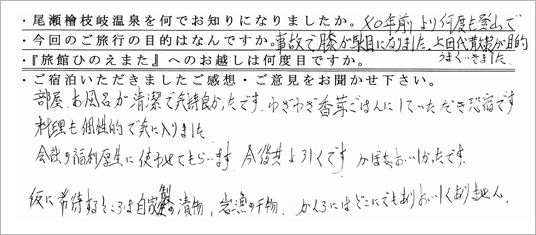 ・尾瀬檜枝岐温泉を何でお知りになりましたか。40年前より何度も登山で
・今回のご旅行の目的はなんですか。事故で膝が駄目になりました、上田代散策が目的
うまくいきました。
・『旅館ひのえまた』へのお越しは何度目ですか。
・ご宿泊いただきましたご感想・ご意見をお聞かせ下さい。
部屋、お風呂が清潔で気持良かったです。わざわざ香茸ごはんにしていただき恐縮です
料理も個性的で気に入りました
会社の福利厚生に使わせてもらいます 今後共よろしくです かぼちゃおいしかったです。
仮に希望するところは自家製の漬物、岩漁の干物、かんろにはどこにでもありおいしくありません。